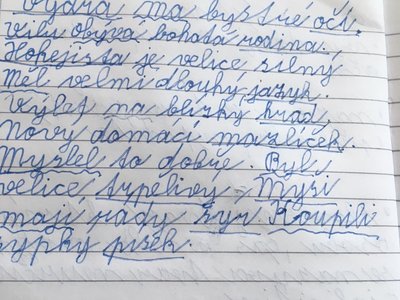 Vydra má bystré oči.
Vilu obývá bohatá rodina.
Hokejista je velice silný
Měl velmi dlouhý jazyk.
Výlet na blízký hrad,
nový domácí mazlíček.
Myslel to dobře. Byl
velice trpělivý. Myši
mají rády sýr. Koupili
sypký písek.